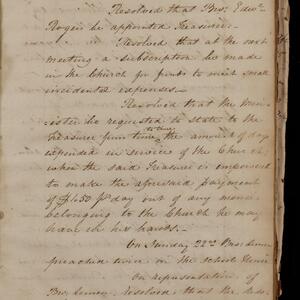 Resolved that Bro. Edwd.
Rogers be appointed Treasurer.
Resolved that at the next
meeting a subscription be made
in the Church for funds to meet small
incidental expenses.—
Resolved that the min-
ister be requested to state to the
Treasurer from time to time the amount of days
expended in service of the Church
when the said Treasurer is empowered
to make the aforesaid payment
of $1.50 pr day out of any money
belonging to the Church he may
have in his hands.—
On Sunday 22nd Bro.
preached twice in the school House
On representation of
Bro. resolved that the